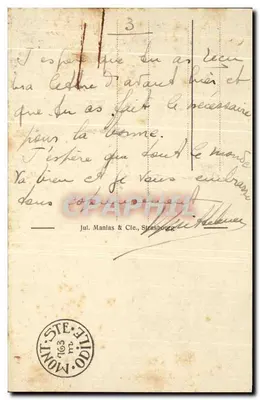 3
J'espère que tu as reçu
ma lettre d'avant hier et
que tu as fait le nécessaire
pour la bonne.
J'espère que tout le monde
va bien et je vous embrasse
tous
CPAPHIL
Jul. Manias & Cie., Strasbourg
MONT·STE·ODILE·
763 m